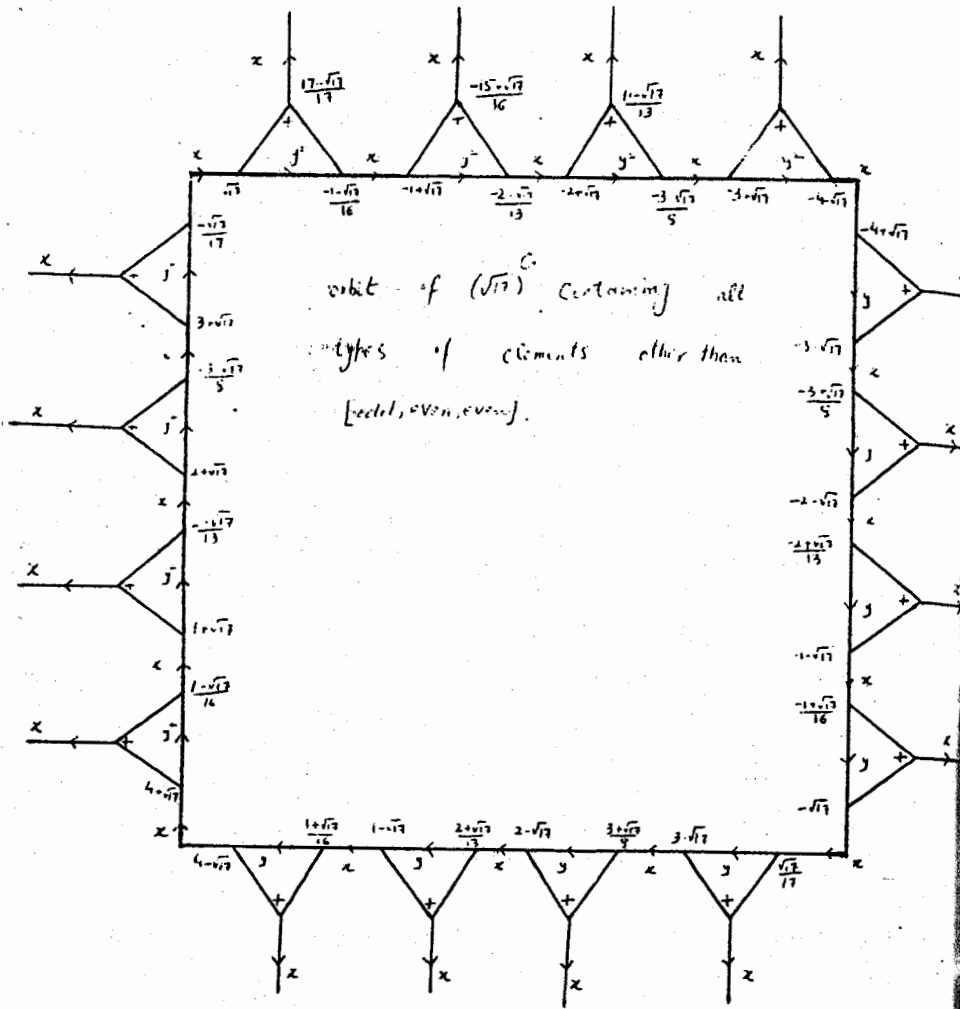 x x x x
17-√17/17 -15+√17/16 11-√17/13
+ + + +
x y² x y² x y² x y² x
√17 -1-√17/16 -1+√17 -2-√17/13 -2+√17 -3-√17/8 -3+√17 -4-√17
-√17/17 -4+√17
x + y
3+√17 -3-√17
orbit of (√17)^G containing all
types of elements other than
[odd, even, even].
-3+√17/8
x x
2+√17 -2-√17
x x
-2+√17/13
y +
1+√17 -1-√17
x x
1-√17/16 -1+√17/16
x + y +
4+√17 -√17
x
4-√17 1+√17/16 1-√17 2+√17/13 2-√17 3+√17/8 3-√17 √17/17
y x y x y x y x
+ + + +
x x x x